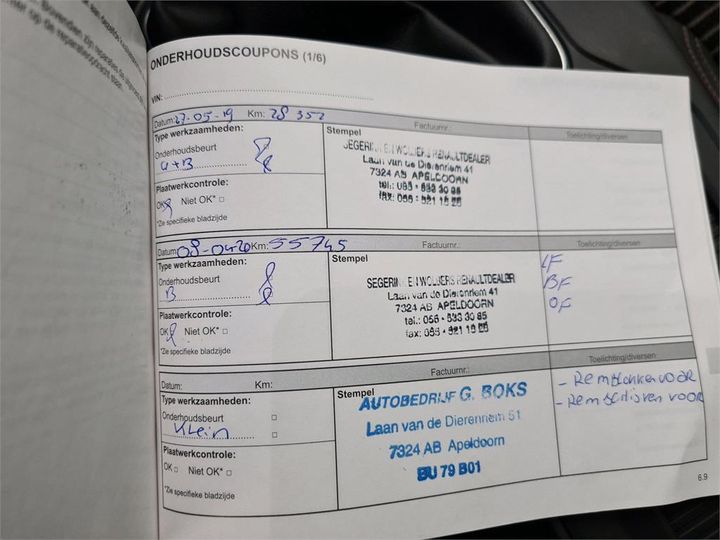 ONDERHOUDSCOUPONS (1/6)
VIN:
Datum: 27-05-19 Km: 28 352 Factuurnr.: Toelichting/diversen:
Type werkzaamheden:
Onderhoudsbeurt
A+B
Plaatwerkcontrole:
OK Niet OK* □
*Zie specifieke bladzijde
Stempel
SEGERINK EN WOLNERS RENAULTDEALER
Laan van de Dierenriem 41
7324 AB APELDOORN
tel.: 055 - 533 30 85
fax: 055 - 521 16 26
Datum: 08-04-20 Km: 55745 Factuurnr.: Toelichting/diversen:
Type werkzaamheden:
Onderhoudsbeurt
B
Plaatwerkcontrole:
OK Niet OK* □
*Zie specifieke bladzijde
Stempel
SEGERINK EN WOLNERS RENAULTDEALER
Laan van de Dierenriem 41
7324 AB APELDOORN
tel.:
fax:
BF
OF
Datum: Km: Factuurnr.: Toelichting/diversen:
Type werkzaamheden:
Onderhoudsbeurt □
Klein □
Plaatwerkcontrole:
OK □ Niet OK* □
*Zie specifieke bladzijde
Stempel
AUTOBEDRIJF G. BOKS
Laan van de Dierenriem 51
7324 AB Apeldoorn
BU 79 B01
- Remblokken voor
- Remschijven voor
6.9